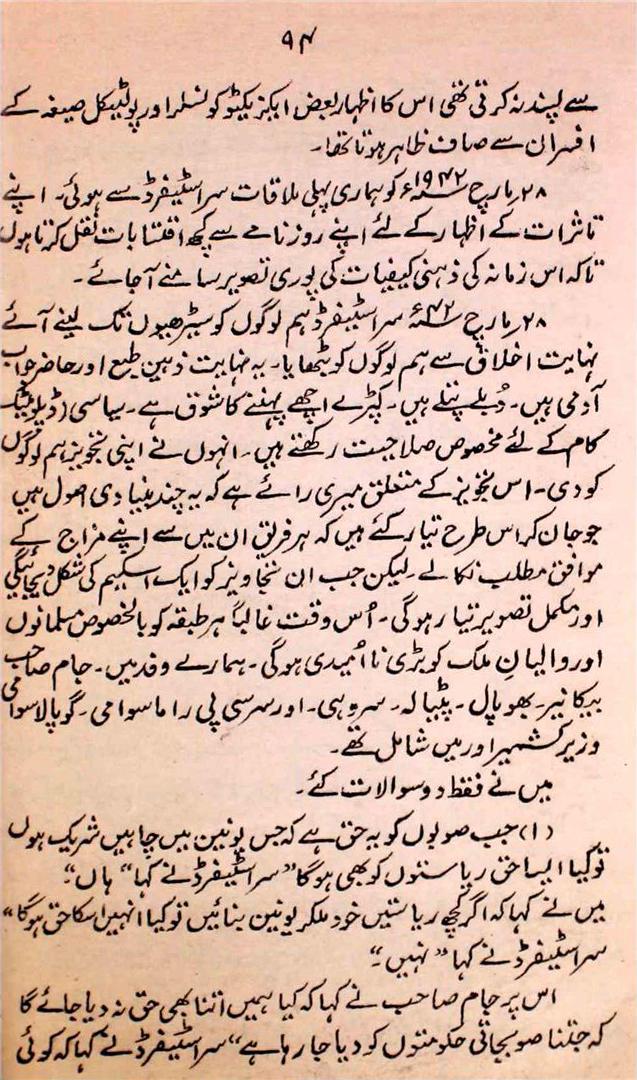 ۹۴
سے پسند نہ کرتی تھی اس کا اظہار بعض ایکزیکٹو کونسلر اور پولٹیکل صیغہ کے
افسران سے صاف ظاہر ہوتا تھا۔
۲۸ مارچ ۱۹۴۲ء کو ہماری پہلی ملاقات سر اسٹیفرڈ سے ہوئی۔ اپنے
تاثرات کے اظہار کے لئے اپنے روزنامچے سے کچھ اقتباسات نقل کرتا ہوں
تاکہ اس زمانہ کی ذہنی کیفیات کی پوری تصویر سامنے آجائے۔
۲۸ مارچ ۴۲ء سر اسٹیفرڈ ہم لوگوں کو سیڑھیوں تک لینے آئے
نہایت اخلاق سے ہم لوگوں کو بٹھایا۔ یہ نہایت ذہین طبع اور حاضر جواب
آدمی ہیں۔ دُبلے پتلے ہیں۔ کپڑے اچھے پہننے کا شوق ہے۔ سیاسی (ڈپلومیٹک
کام کے لئے مخصوص صلاحیت رکھتے ہیں۔ انہوں نے اپنی تجویز ہم لوگوں
کو دی۔ اس تجویز کے متعلق میری رائے ہے کہ یہ چند بنیادی اصول ہیں
جو جان کر اس طرح تیار کئے ہیں کہ ہر فریق ان میں سے اپنے مزاج کے
موافق مطلب نکالے۔ لیکن جب ان تجاویز کو ایک اسکیم کی شکل دیجائیگی
اور مکمل تصویر تیار ہوگی۔ اُس وقت غالباً ہر طبقہ کو بالخصوص مسلمانوں
اور والیانِ ملک کو بڑی نا اُمیدی ہوگی۔ ہمارے وفد میں۔ جام صاحب
بیکانیر۔ بھوپال۔ پٹیالہ۔ سروہی۔ اور سر سی پی راما سوامی۔ گوپالا سوامی
وزیر کشمیر اور میں شامل تھے۔
میں نے فقط دو سوالات کئے۔
(۱) جب صوبوں کو یہ حق ہے کہ جس یونین میں چاہیں شریک ہوں
تو کیا ایسا حق ریاستوں کو بھی ہوگا" سر اسٹیفرڈ نے کہا "ہاں"۔
میں نے کہا کہ اگر کچھ ریاستیں خود ملکر یونین بنائیں تو کیا انہیں اسکا حق ہوگا"
سر اسٹیفرڈ نے کہا "نہیں"۔
اس پر جام صاحب نے کہا کہ کیا ہمیں اتنا بھی حق نہ دیا جائے گا
کہ جتنا صوبجاتی حکومتوں کو دیا جا رہا ہے" سر اسٹیفرڈ نے کہا کہ کوئی